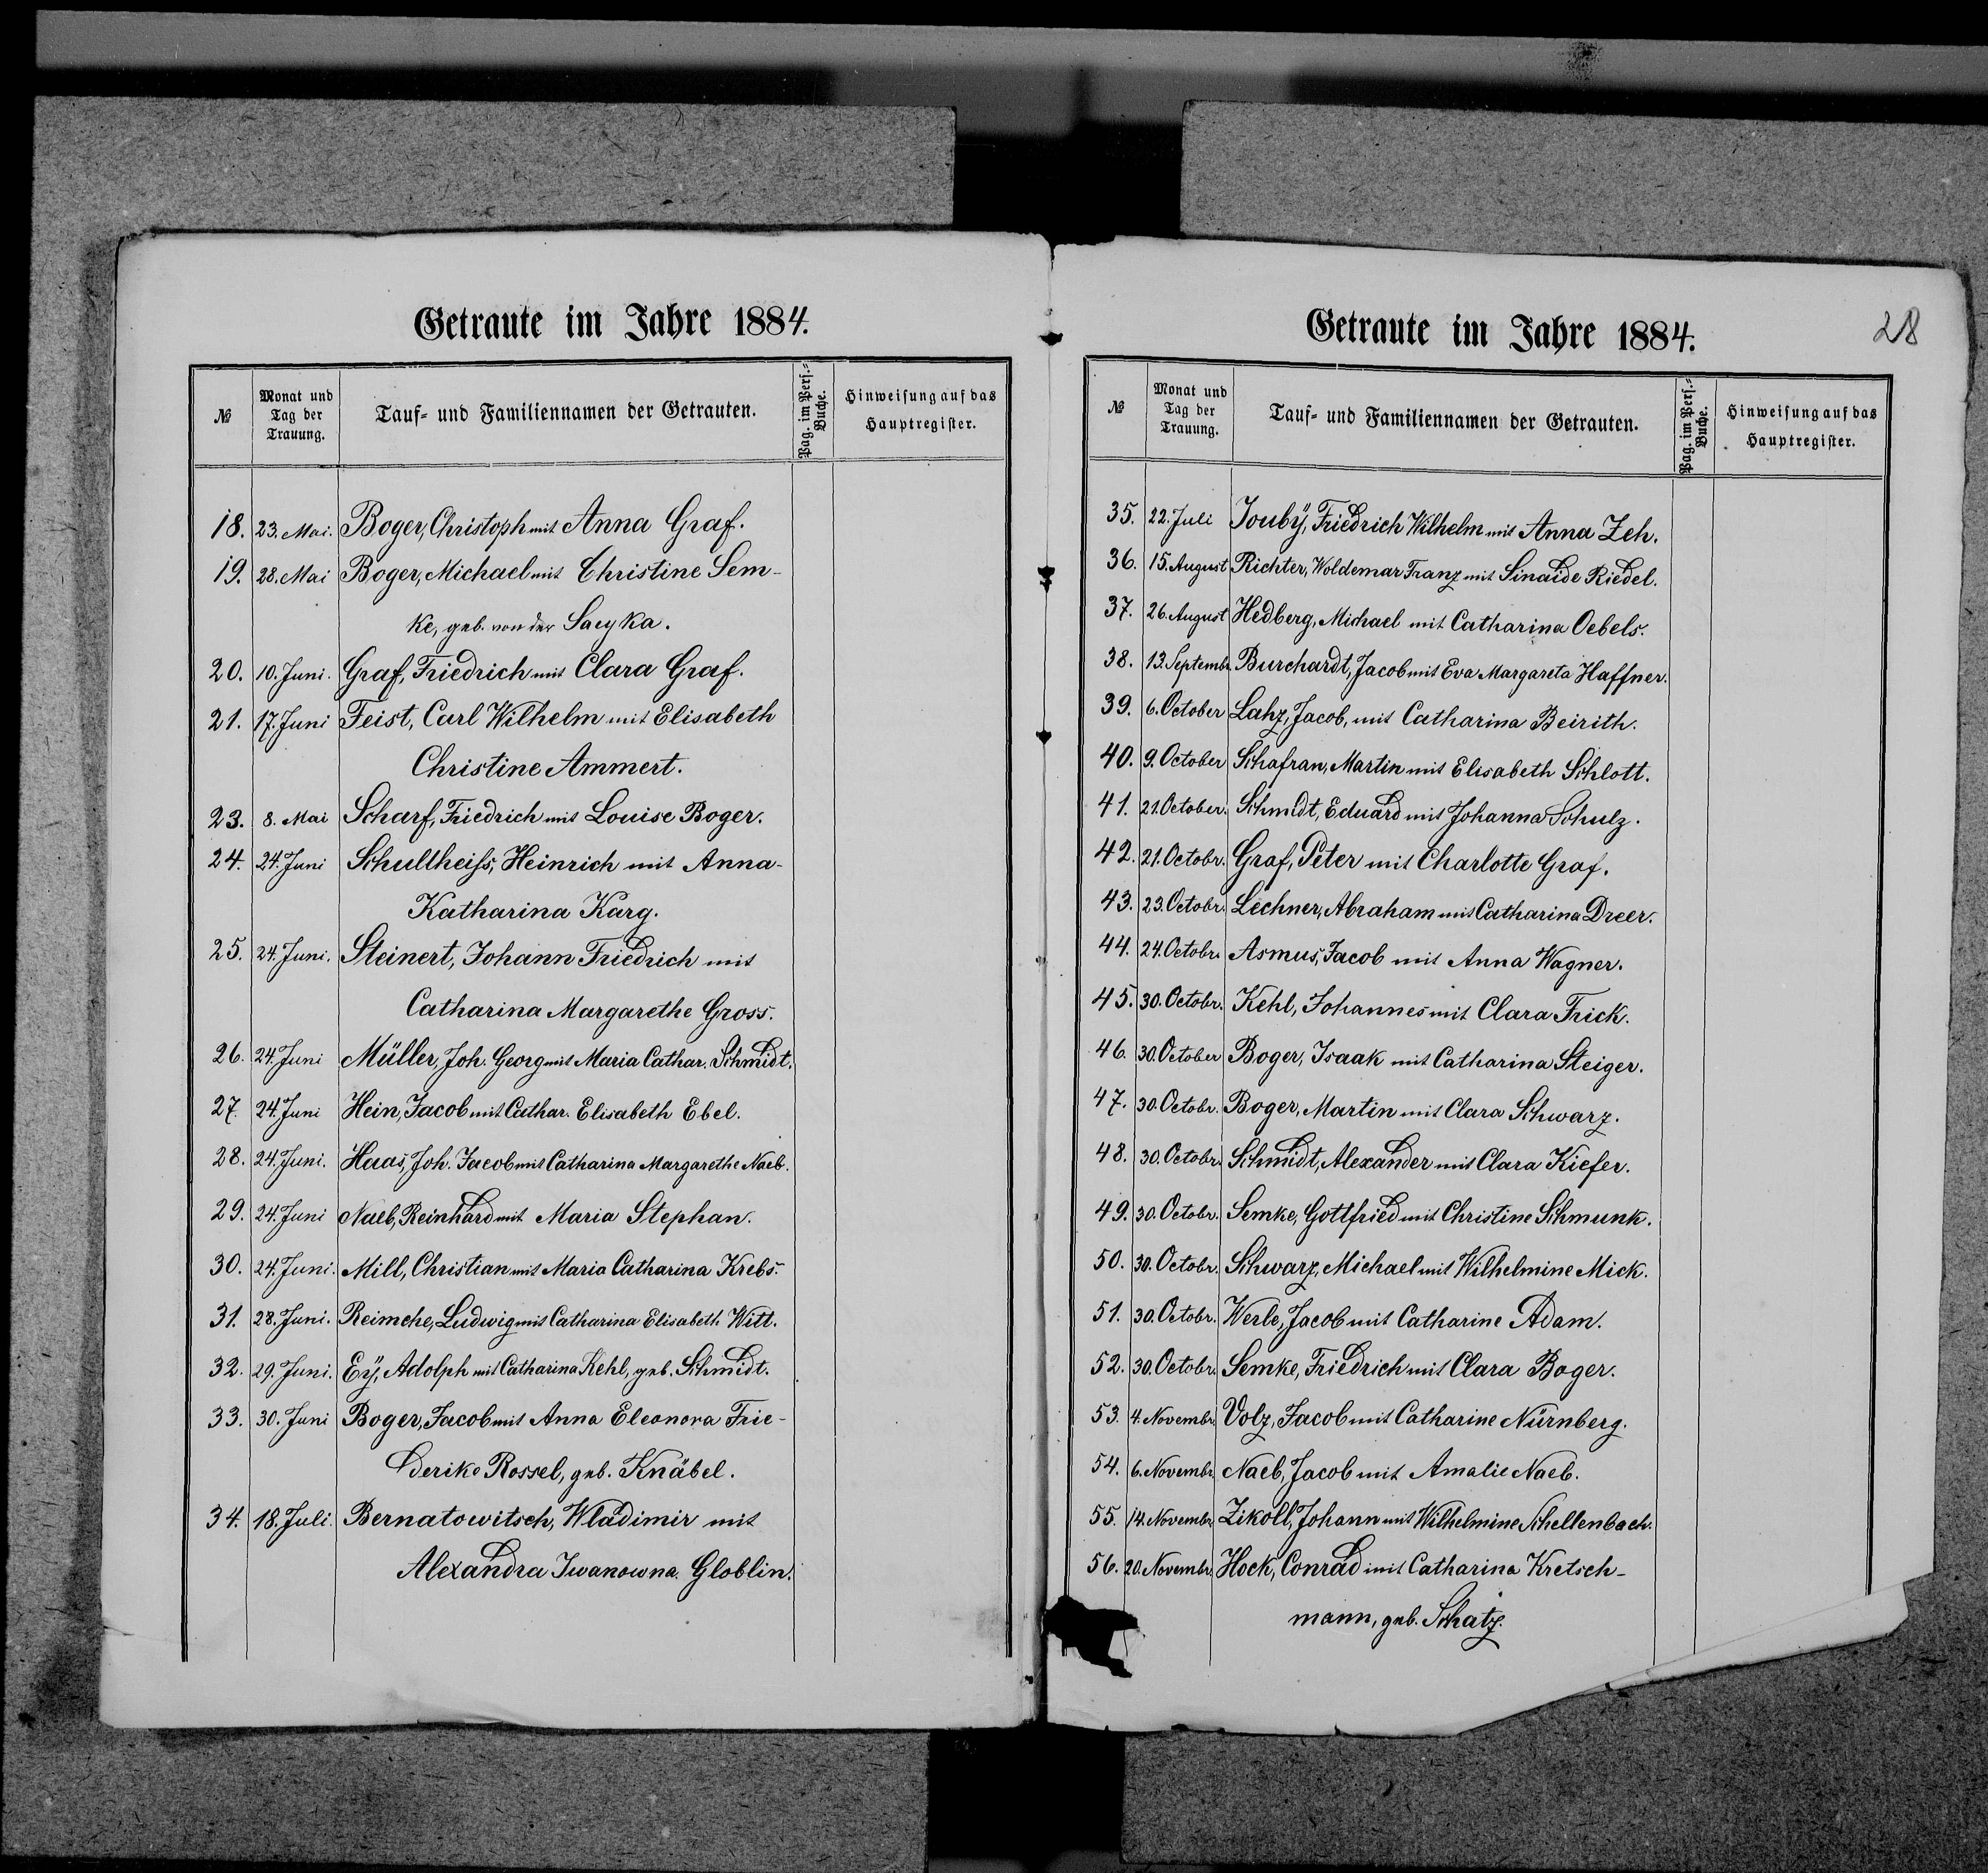 Getraute im Jahre 1884.
№
Monat und
Tag der
Trauung.
Tauf- und Familiennamen der Getrauten.
Pag. im Pers.-
Buche.
Hinweisung auf das
Hauptregister.
18. 23. Mai. Boger, Christoph mit Anna Graf.
19. 28. Mai Boger, Michael mit Christine Sem-
ke, geb. von der
20. 10. Juni. Graf, Friedrich mit Clara Graf.
21. 17. Juni Feist, Carl Wilhelm mit Elisabeth
Christine Ammert.
23. 8. Mai Scharf, Friedrich mit Louise Boger.
24. 24. Juni Schultheiss, Heinrich mit Anna-
Katharina Karg.
25. 24. Juni. Steinert, Johann Friedrich mit
Catharina Margarethe Gross.
26. 24. Juni Müller, Joh. Georg mit Maria Cathar. Schmidt.
27. 24. Juni Hein, Jacob mit Cathar. Elisabeth Ebel.
28. 24. Juni. Haas, Joh. Jacob mit Catharina Margarethe Naeb.
29. 24. Juni Naeb, Reinhard mit Maria Stephan.
30. 24. Juni. Mill, Christian mit Maria Catharina Krebs.
31. 28. Juni. Reimche, Ludwig mit Catharina Elisabeth Witt.
32. 29. Juni. Eÿ, Adolph mit Catharina Kehl, geb. Schmidt.
33. 30. Juni Boger, Jacob mit Anna Eleonora Frie-
derike Rossel, geb. Knäbel.
34. 18. Juli. Bernatowitsch, Wladimir mit
Alexandra Iwanowna Globlin.
Getraute im Jahre 1884.
28
№
Monat und
Tag der
Trauung.
Tauf- und Familiennamen der Getrauten.
Pag. im Pers.-
Buche.
Hinweisung auf das
Hauptregister.
35. 22. Juli Joubÿ, Friedrich Wilhelm mit Anna Zeh.
36. 15. August Richter, Woldemar Franz mit Sinaide Riedel.
37. 26. August Hedberg, Michael mit Catharina Oebels.
38. 13. Septembr. Burchardt, Jacob mit Eva Margareta Haffner.
39. 6. October Lahz, Jacob, mit Catharina Beirith.
40. 9. October Schafran, Martin mit Elisabeth Schlott.
41. 21. October. Schmidt, Eduard mit Johanna Schulz.
42. 21. Octobr. Graf, Peter mit Charlotte Graf.
43. 23. Octobr. Lechner, Abraham mit Catharina Dreer.
44. 24. Octobr. Asmus, Jacob mit Anna Wagner.
45. 30. Octobr. Kehl, Johannes mit Clara Frick.
46. 30. October Boger, Isaak mit Catharina Steiger.
47. 30. Octobr. Boger, Martin mit Clara Schwarz.
48. 30. Octobr. Schmidt, Alexander mit Clara Kiefer.
49. 30. Octobr. Semke, Gottfried mit Christine Schmunk.
50. 30. Octobr. Schwarz, Michael mit Wilhelmine Mick.
51. 30. Octobr. Werle, Jacob mit Catharine Adam.
52. 30. Octobr. Semke, Friedrich mit Clara Boger.
53. 4. Novembr. Volz, Jacob mit Catharine Nürnberg.
54. 6. Novembr. Naeb, Jacob mit Amalie Naeb.
55. 14. Novembr. Zikoll, Johann mit Wilhelmine Schellenbach.
56. 20. Novembr. Hock, Conrad mit Catharina Kretsch-
mann, geb. Schatz.